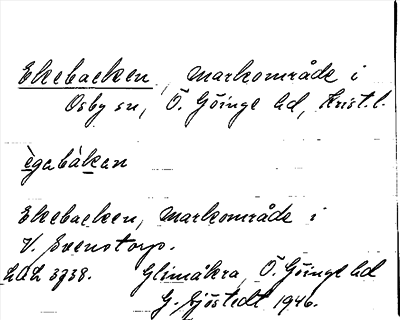 Ekebacken, markområde i
Osby sn, Ö. Göinge hd, Krist. l.
ègabàkan
Ekebacken, markområde i
V. Svenstorp.
LAL 3938. Glimåkra, Ö. Göinge hd
G. Sjöstedt 1946.